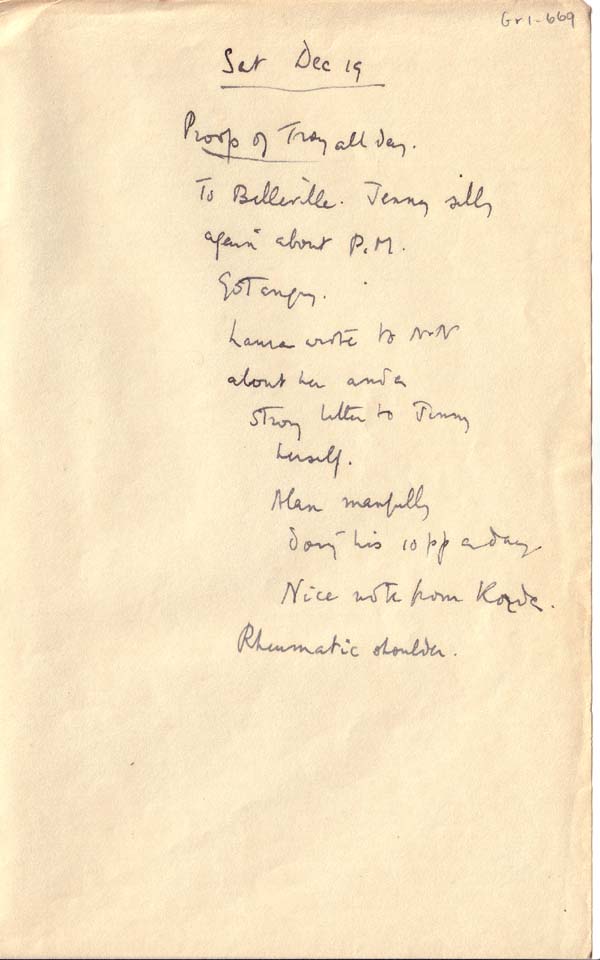 Gr1-669
Sat Dec 19
Proofs of Troy all day.
To Belleville. Jenny silly
again about P.M.
Got angry.
Laura wrote to N-N
about her and a
strong letter to Jenny
herself.
Alan manfully
doing his 10 pp a day
Nice note from Korda.
Rheumatic shoulder.